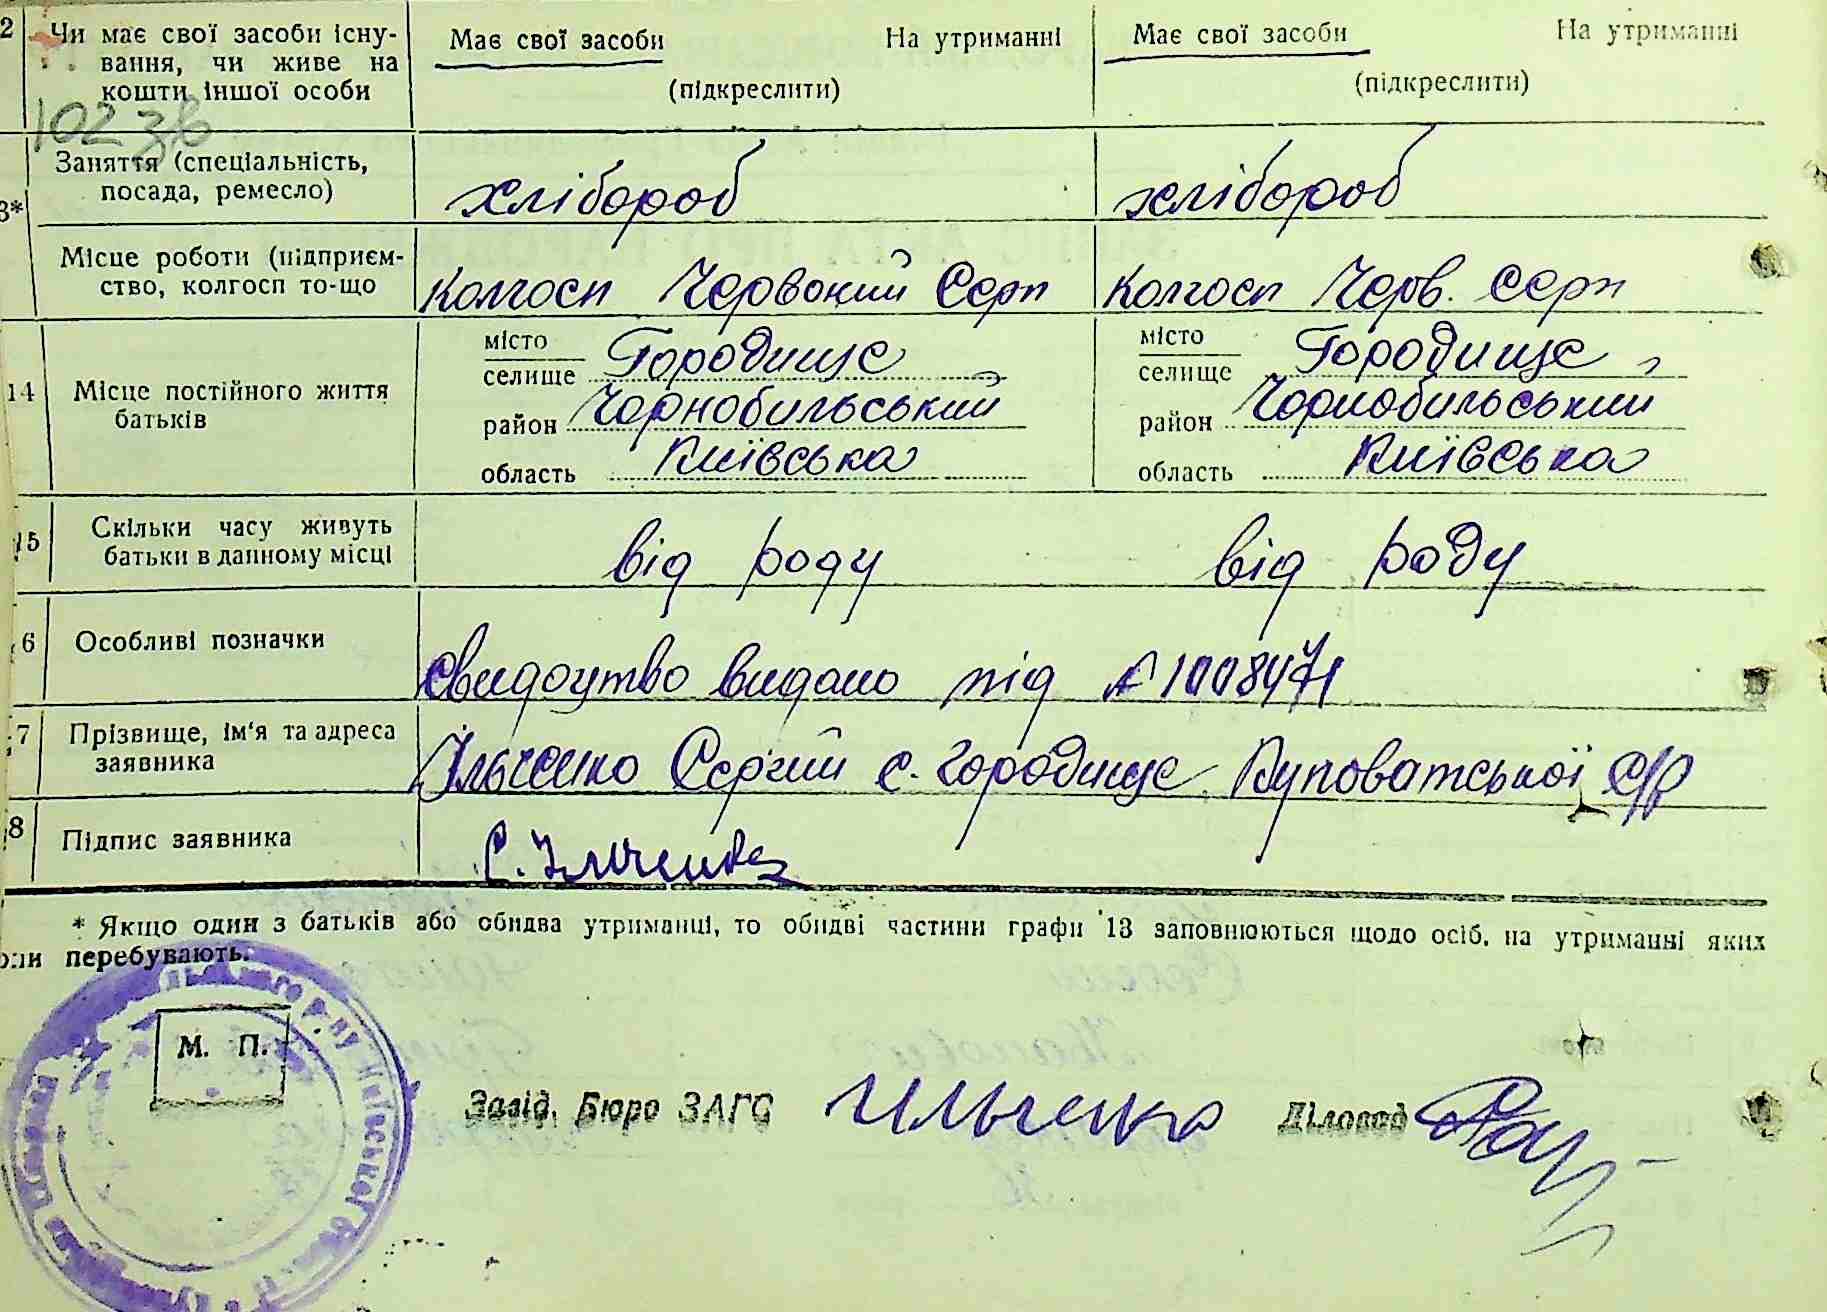 2 Чи має свої засоби існу-
вання, чи живе на
кошти іншої особи
Має свої засоби На утриманні
(підкреслити)
Має свої засоби На утриманні
(підкреслити)
102 зв
3* Заняття (спеціальність,
посада, ремесло)
хлібороб хлібороб
Місце роботи (підприєм-
ство, колгосп то-що
Колгосп Червоний Серп Колгосп Черв. Серп
14 Місце постійного життя
батьків
місто
селище Городище
район Чорнобильський
область Київська
місто
селище Городище
район Чорнобильський
область Київська
15 Скільки часу живуть
батьки в данному місці
від роду від роду
6 Особливі позначки
Свидоцтво видано під № 1008471
7 Прізвище, ім'я та адреса
заявника
Ільченко Сергій с. Городище Куповатської с/р
8 Підпис заявника
С. Ільченко
* Якщо один з батьків або обидва утриманці, то обидві частини графи 13 заповнюються щодо осіб, на утриманні яких
они перебувають.
М. П.
Завід. Бюро ЗАГС Ильченко Діловод